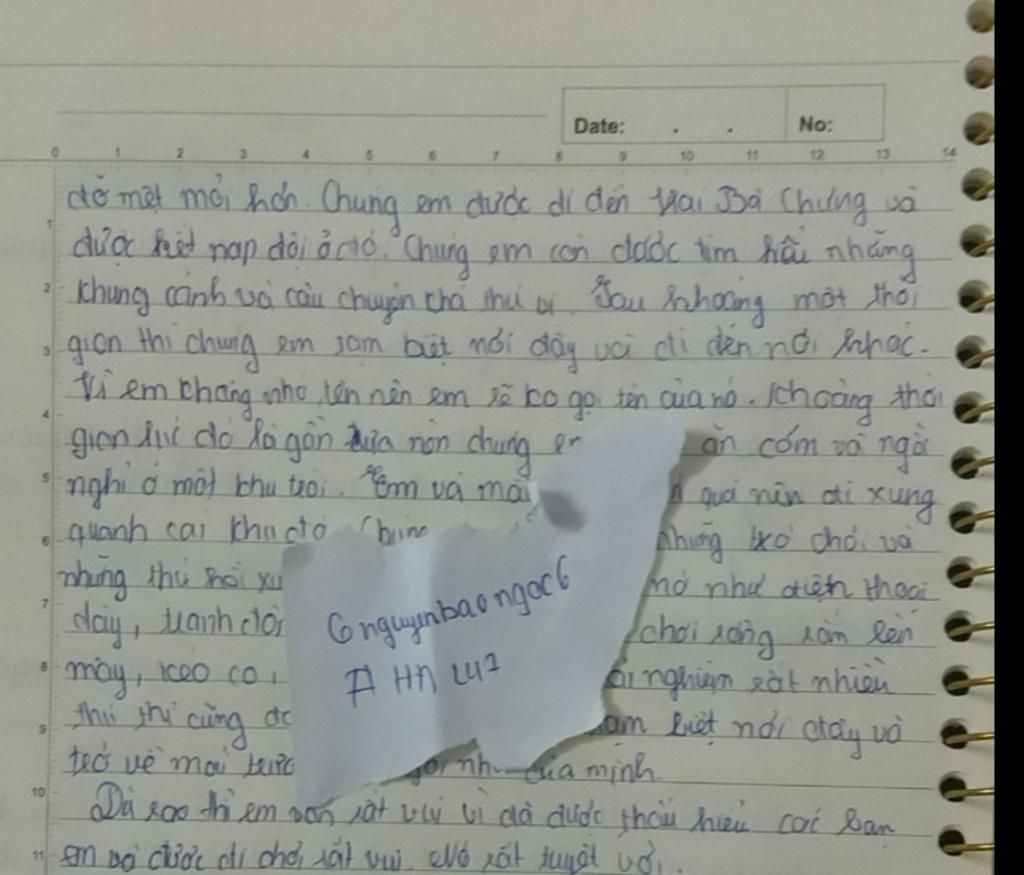 Date: . . No:
0 1 2 3 4 5 6 7 8 9 10 11 12 13 14
đỡ mệt mỏi hơn. Chúng em được đi đến Hai Bà Chưng và
1 được kết nạp đội ở đó. Chúng em còn được tìm hẩu nhãng
2 khung cảnh và câu chuyện thú vị. Sau khoảng một thời
3 gian thì chúng em sam biệt nơi đây và đi đến nơi khác.
Vì em không nhớ tên nên em sẽ ko gọi tên của nó. Khoảng thời
4 gian lúc đó là gần trưa nên chúng em ăn cơm và ngồi
5 nghỉ ở một khu trại. Em và quá nên đi xung
6 quanh cái khu đó. Chúng những trò chơi và
những thứ hồi như điện thoại
7 dây, tranh chơi rồng rắn lên
8 mây, kéo co, nghiệm rất nhiều
9 thứ thì cũng biệt nơi đây và
trở về mái trường của mình.
10 Dù sao thì em vẫn rất vui vì đã được thấu hiểu các bạn
11 em và được đi chơi rất vui. Nó rất tuyệt vời.
6nguyenbaongoc6